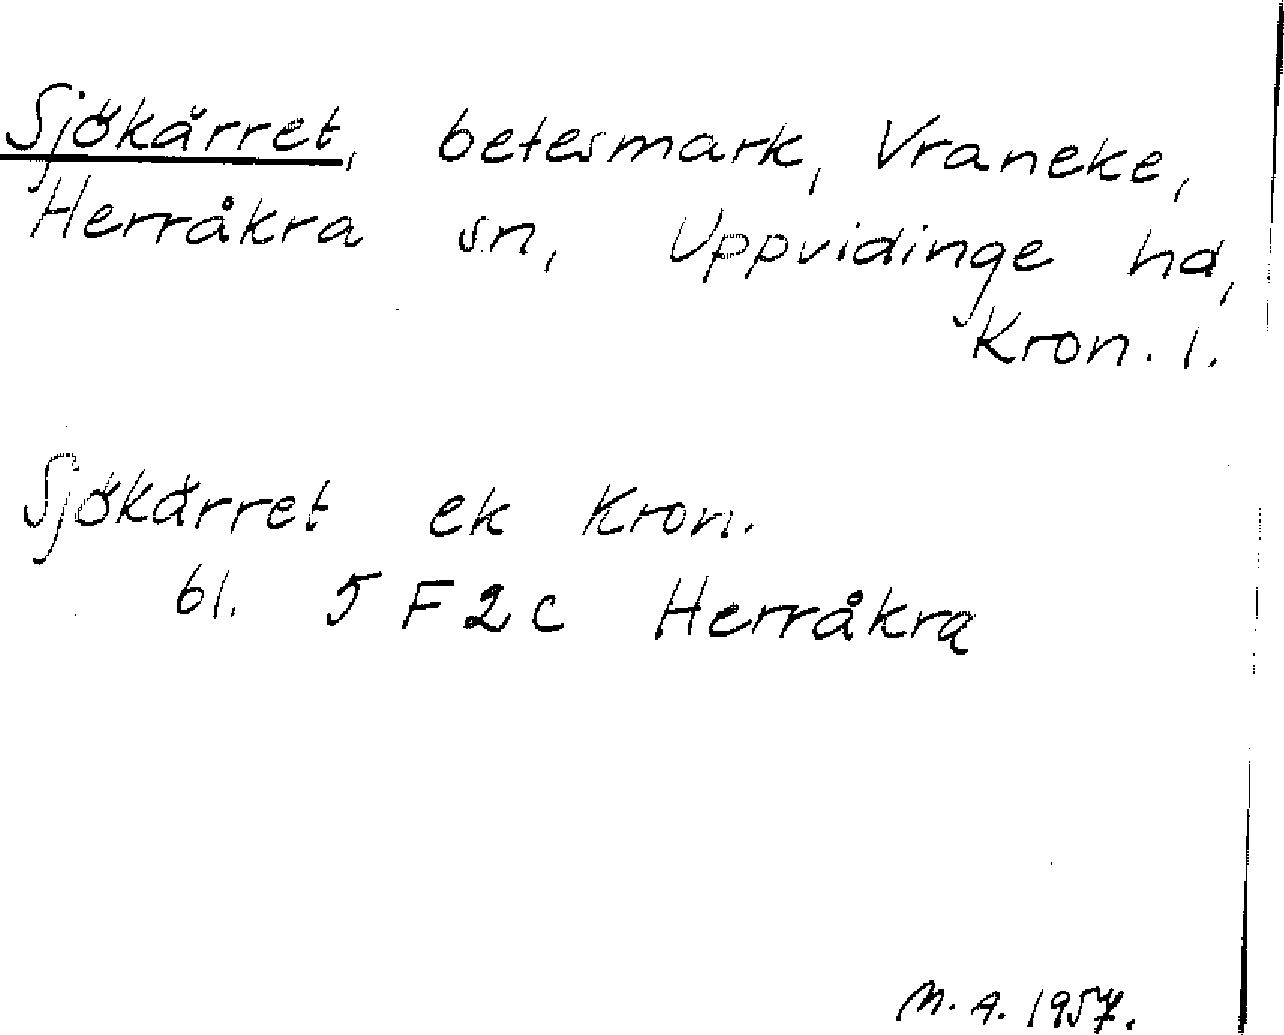 Sjökärret, betesmark, Vraneke,
Herråkra sn, Uppvidinge hd,
Kron. l.
Sjökärret ek Kron.
bl. 5 F 2 c Herråkra
M. A. 1957.